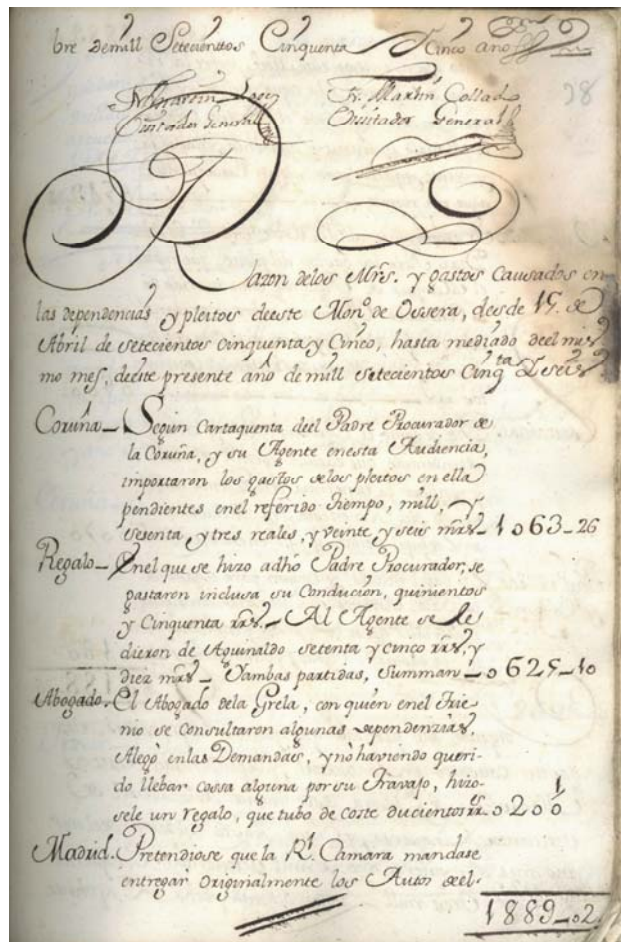 bre demill Setecienttos Cinquenta y Cinco año
Fr. Martin
Visitador General
Fr. Martin Collado
Visitador General
Razon delos Mrs. y gastos Causados en
las dependencias y pleitos deeste Mon.º de Ossera, desde 15. de
Abril de setecientos cinquenta y Cinco, hasta mediado deel mis
mo mes, deeste presente año de mill setecientos Cinq.ta y seis
Coruña_ Segun Cartaquenta deel Padre Procurador de
la Coruña, y su Agente enesta Audiencia,
importaron los gastos delos pleitos en ella
pendientes enel referido tiempo, mill, y
sesenta y tres reales, y veinte y seis mrs_ 1063_26
Regalo_ Enel que se hizo adhó Padre Procurador, se
gastaron inclusa su Condución, quinientos
y Cinquenta rrs._ Al Agente se le
dieron de Aguinaldo setenta y cinco rrs, y
diez mrs_ Yambas partidas, Summan_o 625_10
Abogado. El Abogado dela Grela, con quien enel Trie
nio se consultaron algunas dependenzias,
Alegò enlas Demandas, y nò haviendo queri-
do llebar cossa alguna por su Travajo, hizo-
sele un regalo, que tubo de coste ducientos rr.es o 200
Madrid. Pretendiose que la Rl. Camara mandase
entregar Originalmente los Autos deel
1889_02